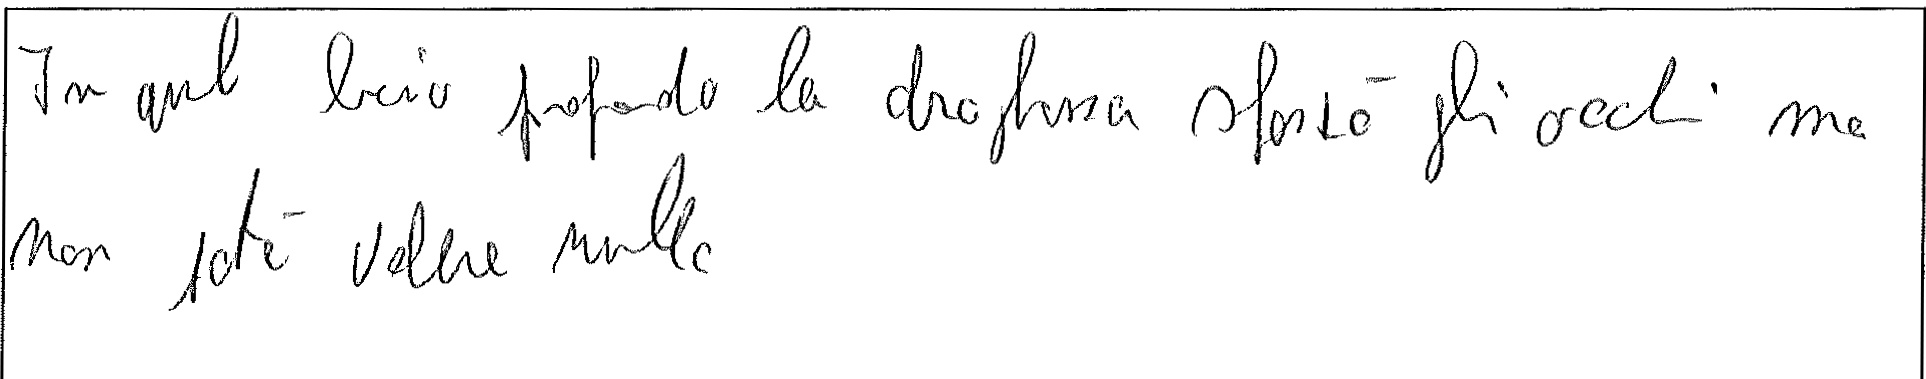 In quel buio profondo la draghessa spostò gli occhi ma
non potè vedere nulla